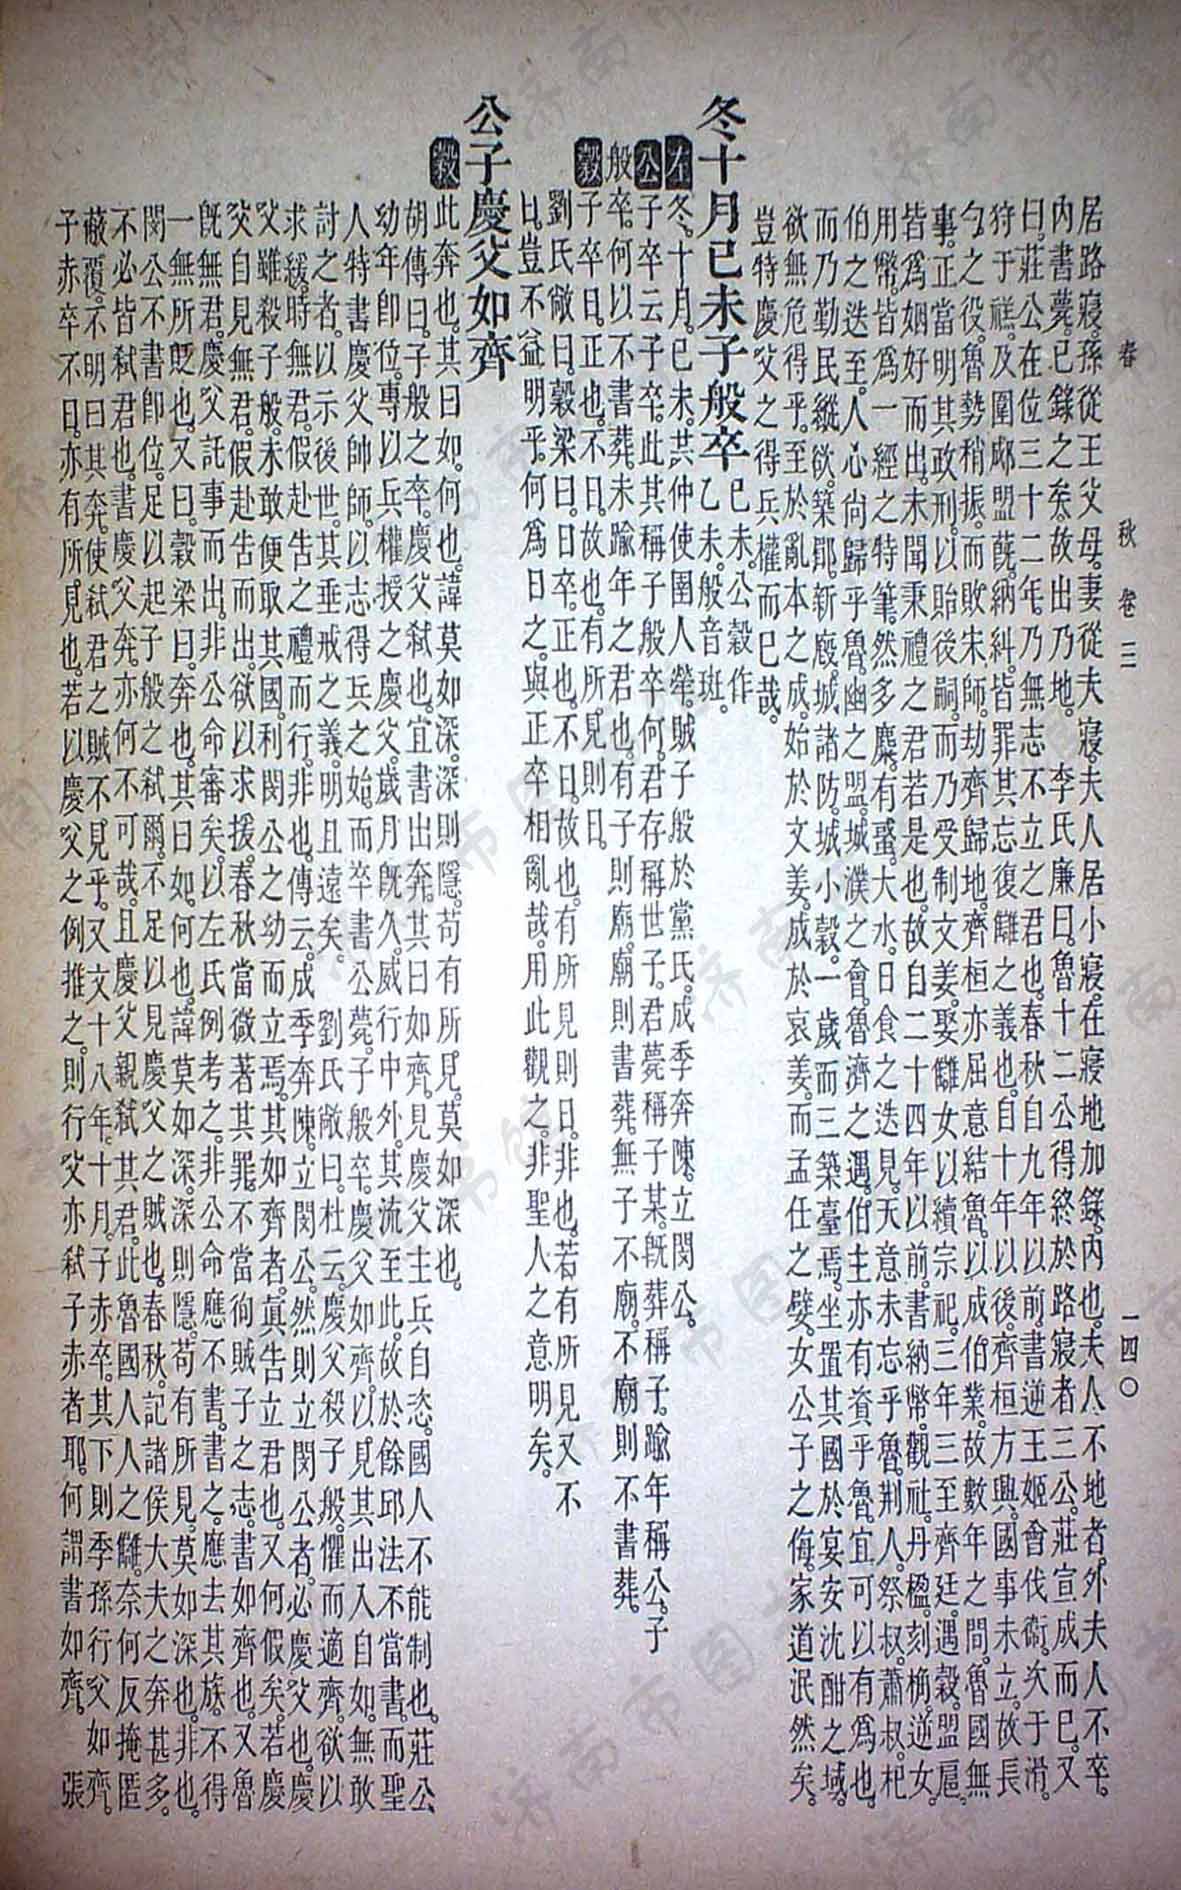 春　秋　卷三　一四〇
居路寢。孫從王父母。妻從夫寢。夫人居小寢。在寢地加錄。內也。夫人不地者。外夫人不卒。
內書薨。已錄之矣。故出乃地。　李氏廉曰。魯十二公得終於路寢者三公。莊宣成而已。又
曰。莊公在位三十二年。乃無志不立之君也。春秋自九年以前。書逆王姬會伐衞。次于滑。
狩于禚。及圍郕盟蔇。納糾。皆罪其忘復讎之義也。自十年以後。齊桓方興。國事未立。故長
勺之役。魯勢稍振。而敗宋師。劫齊歸地。齊桓亦屈意結魯。以成伯業。故數年之間。魯國無
事。正當明其政刑。以貽後嗣。而乃受制文姜。娶讎女以續宗祀。三年三至齊廷。遇穀。盟扈。
皆爲姻好而出。未聞秉禮之君若是也。故自二十四年以前。書納幣。觀社。丹楹。刻桷。逆女。
用幣。皆爲一經之特筆。然多麋。有蜚。大水。日食之迭見。天意未忘乎魯。荆人。祭叔。蕭叔。杞
伯之迭至。人心尙歸乎魯。幽之盟。城濮之會。魯濟之遇。伯主亦有資乎魯。宜可以有爲也。
而乃勤民縱欲。築郿。新廐。城諸防。城小穀。一歲而三築臺焉。坐置其國於宴安沈酣之域。
欲無危得乎。至於亂本之成。始於文姜。成於哀姜。而孟任之嬖。女公子之侮。家道泯然矣。
豈特慶父之得兵權而已哉。
冬十月己未子般卒　己未。公穀作乙未。般音班。
左　冬。十月。己未。共仲使圉人犖。賊子般於黨氏。成季奔陳。立閔公。
公　子卒云子卒。此其稱子般卒何。君存稱世子。君薨稱子某。旣葬稱子。踰年稱公。子
般卒。何以不書葬。未踰年之君也。有子則廟。廟則書葬。無子不廟。不廟則不書葬。
穀　子卒日。正也。不日。故也。有所見則日。
劉氏敞曰。穀梁曰。日卒。正也。不日。故也。有所見則日。非也。若有所見又不
日。豈不益明乎。何爲日之。與正卒相亂哉。用此觀之。非聖人之意明矣。
公子慶父如齊
穀　此奔也。其曰如。何也。諱莫如深。深則隱。苟有所見。莫如深也。
胡傳曰。子般之卒。慶父弒也。宜書出奔。其曰如齊。見慶父主兵自恣。國人不能制也。莊公
幼年卽位。專以兵權授之慶父。歲月旣久。威行中外。其流至此。故於餘邱法不當書。而聖
人特書慶父帥師。以志得兵之始。而卒書公薨。子般卒。慶父如齊。以見其出入自如。無敢
討之者。以示後世。其垂戒之義。明且遠矣。　劉氏敞曰。杜云。慶父殺子般。懼而適齊。欲以
求緩。時無君。假赴告之禮而行。非也。傳云。成季奔陳。立閔公。然則立閔公者。必慶父也。慶
父雖殺子般。未敢便取其國。利閔公之幼而立焉。其如齊者。眞告立君也。又何假矣。若慶
父自見無君。假赴告而出。欲以求援。春秋當微著其罪。不當徇賊子之志。書如齊也。又魯
旣無君。慶父託事而出。非公命審矣。以左氏例考之。非公命應不書。書之。應去其族。不得
一無所貶也。又曰。穀梁曰。奔也。其曰如。何也。諱莫如深。深則隱。苟有所見。莫如深也。非也。
閔公不書卽位。足以起子般之弒爾。不足以見慶父之賊也。春秋。記諸侯大夫之奔甚多。
不必皆弒君也。書慶父奔。亦何不可哉。且慶父親弒其君。此魯國人人之讎。奈何反掩匿
蔽覆。不明曰其奔。使弒君之賊不見乎。又文十八年。十月。子赤卒。其下則季孫行父如齊。
子赤卒不日。亦有所見也。若以慶父之例推之。則行父亦弒子赤者耶。何謂書如齊。　張